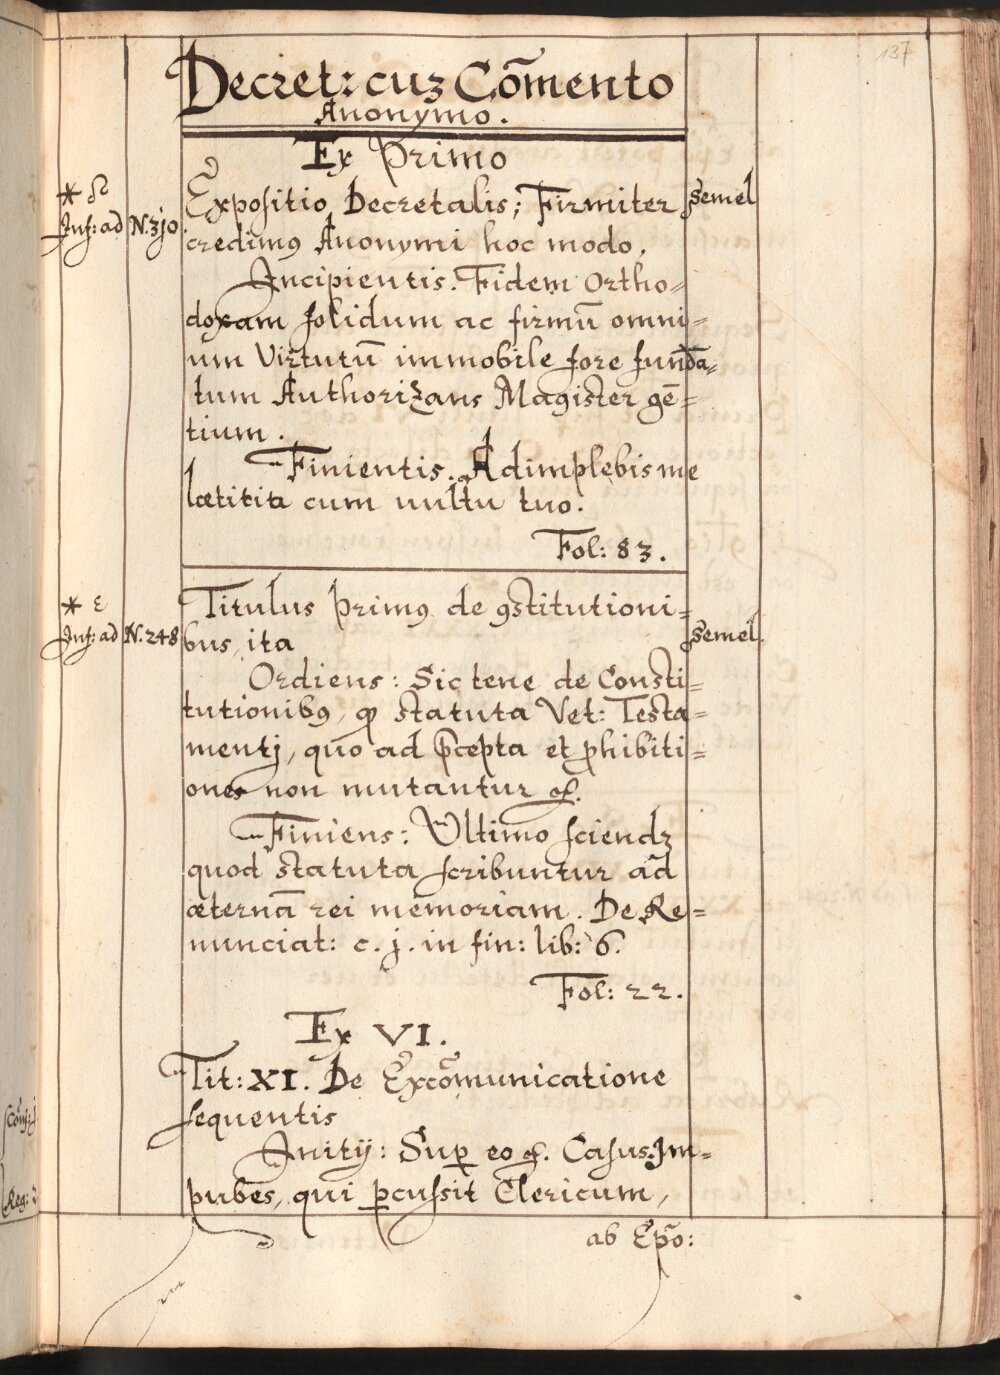 137
Decret: cuz Com̃ento
Anonymo.
Ex Primo
Expositio Decretalis; Firmiter semel
Inf: ad N. 310. credimꝰ Anonymi hoc modo.
Incipientis. Fidem Ortho=
doxam solidum ac firmū omni=
um Virtutū immobile fore funda=
tum Authorizans Magister gē=
tium.
Finientis. Adimplebis me
lætitia cum vultu tuo.
Fol: 83.
Titulus primꝰ de ꝯstitutioni=
Inf: ad N. 248 bus, ita semel.
Ordiens: Sic tene de Consti=
tutionibꝰ, ꝙ statuta Vet: Testa=
mentj, quo ad p̄cepta et ꝓhibiti=
ones non mutantur
Finiens: Ultimo sciendꝫ
quod statuta scribuntur ad
æternā rei memoriam. De Re=
nunciat: c. j. in fin: lib: 6.
Fol: 22.
Ex VI.
Tit: XI. De Excom̃unicatione
sequentis
Initij: Suꝑ eo Casus. Im=
pubes, qui ꝑcussit Clericum,
ab Ep̃o:
Reg: